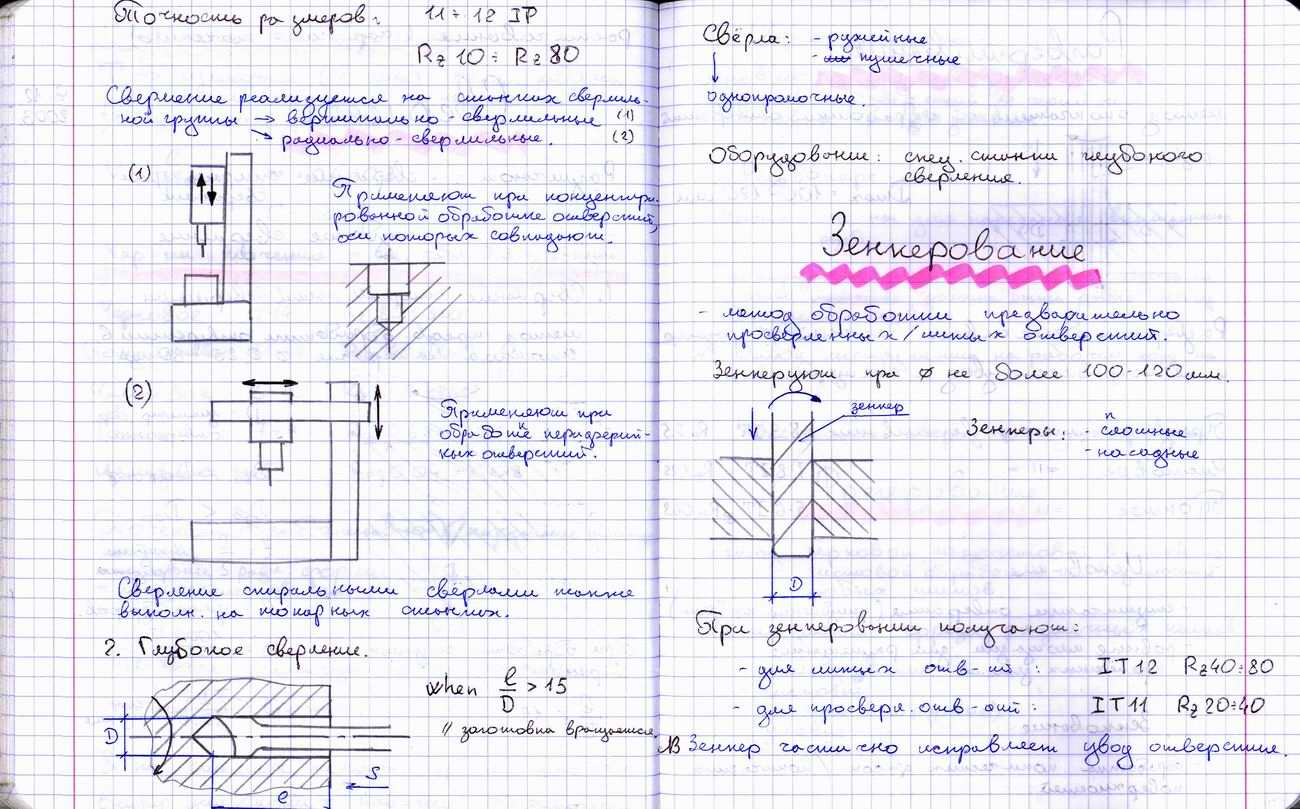 Точность размеров: 11÷12 IP
Rz 10 ÷ Rz 80
Сверление реализуется на станках сверлиль-
ной группы → вертикально-сверлильные (1)
→ радиально-сверлильные. (2)
(1)
Применяют при концентри-
рованной обработке отверстий,
оси которых совпадают.
(2)
Применяют при
обработке
отверстий.
Сверление спиральными свёрлами также
выполн. на токарных станках.
2. Глубокое сверление.
when l/D > 15
// заготовка вращается.
D
S
l
Свёрла: - ружейные
- пушечные
↓
однокромочные.
Оборудование: спец. станки глубокого
сверления.
Зенкерование
- метод обработки предварительно
просверленных/литых отверстий.
Зенкеруют при ø не более 100-120 мм.
зенкер
Зенкеры: - сплошные
- насадные
D
При зенкеровании получают:
- для литых отв-ий: IT12 Rz40÷80
- для просверл. отв-ий: IT11 Rz20÷40
NB Зенкер частично исправляет увод отверстия.